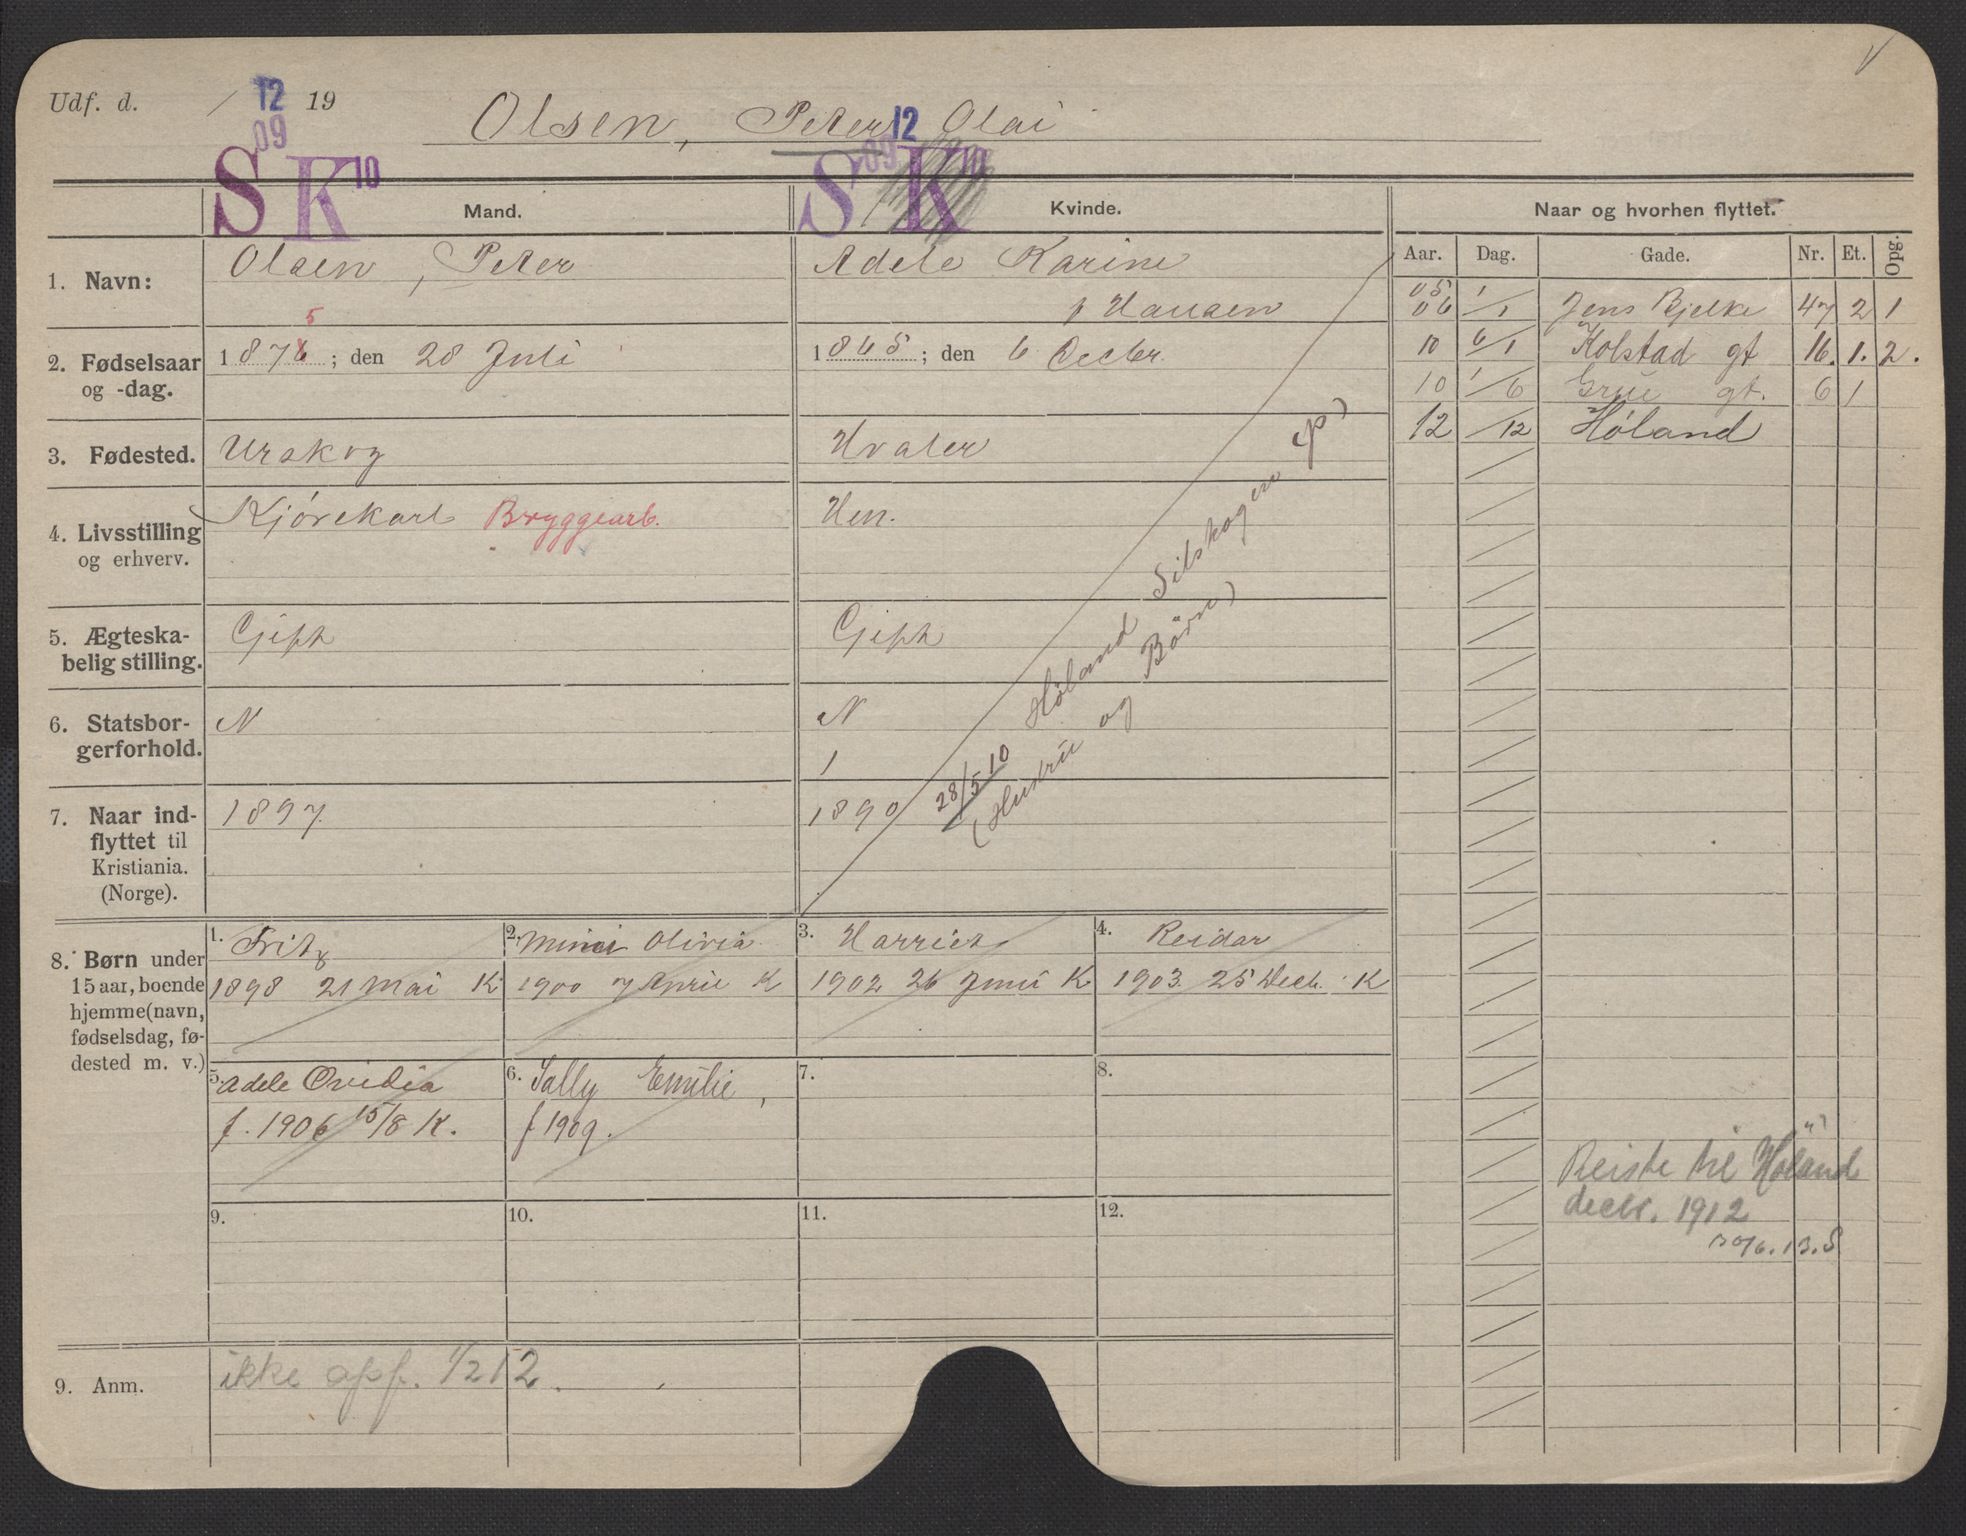 Udf. d. / 12 19
09
Olsen, Peter Olai
12
09
S K 10
S K 10
Mand.
Kvinde.
Naar og hvorhen flyttet.
Aar. Dag. Gade. Nr. Et. Opg.
05 1
06 /1 Jens Bjelke 47 2 1
10 6/1 Kolstad gt 16. 1. 2.
10 1/6 Grue gt. 6 1
12 /12 Høland
1. Navn:
Olsen, Peter
Adele Karine
f Hansen
2. Fødselsaar
og -dag.
5
1876; den 28 Juli
1865; den 6 Decbr.
3. Fødested.
Urskog
Hvaler
4. Livsstilling
og erhverv.
Kjørekarl Bryggearb.
Hen.
5. Ægteska-
belig stilling.
Gift
Gift
6. Statsbor-
gerforhold.
N
N
1
7. Naar ind-
flyttet til
Kristiania.
(Norge).
1897.
1890
28/5 10 Høland Silskogen
(Hustru og Børn)
8. Børn under
15 aar, boende
hjemme (navn,
fødselsdag, fø-
dested m. v.)
1. Fritz
1898 21 Mai K
2. Minni Olivia
1900 7 April K
3. Harriet
1902 26 Juni K
4. Reidar
1903. 25 Decb. K
5. Adele Ovidia
f. 1906 15/8 K.
6. Sally Emilie,
f 1909.
7.
8.
9.
10.
11.
12.
Reiste til Høland
decbr. 1912
30/6.13.S
9. Anm.
ikke opf. 1/2 12.